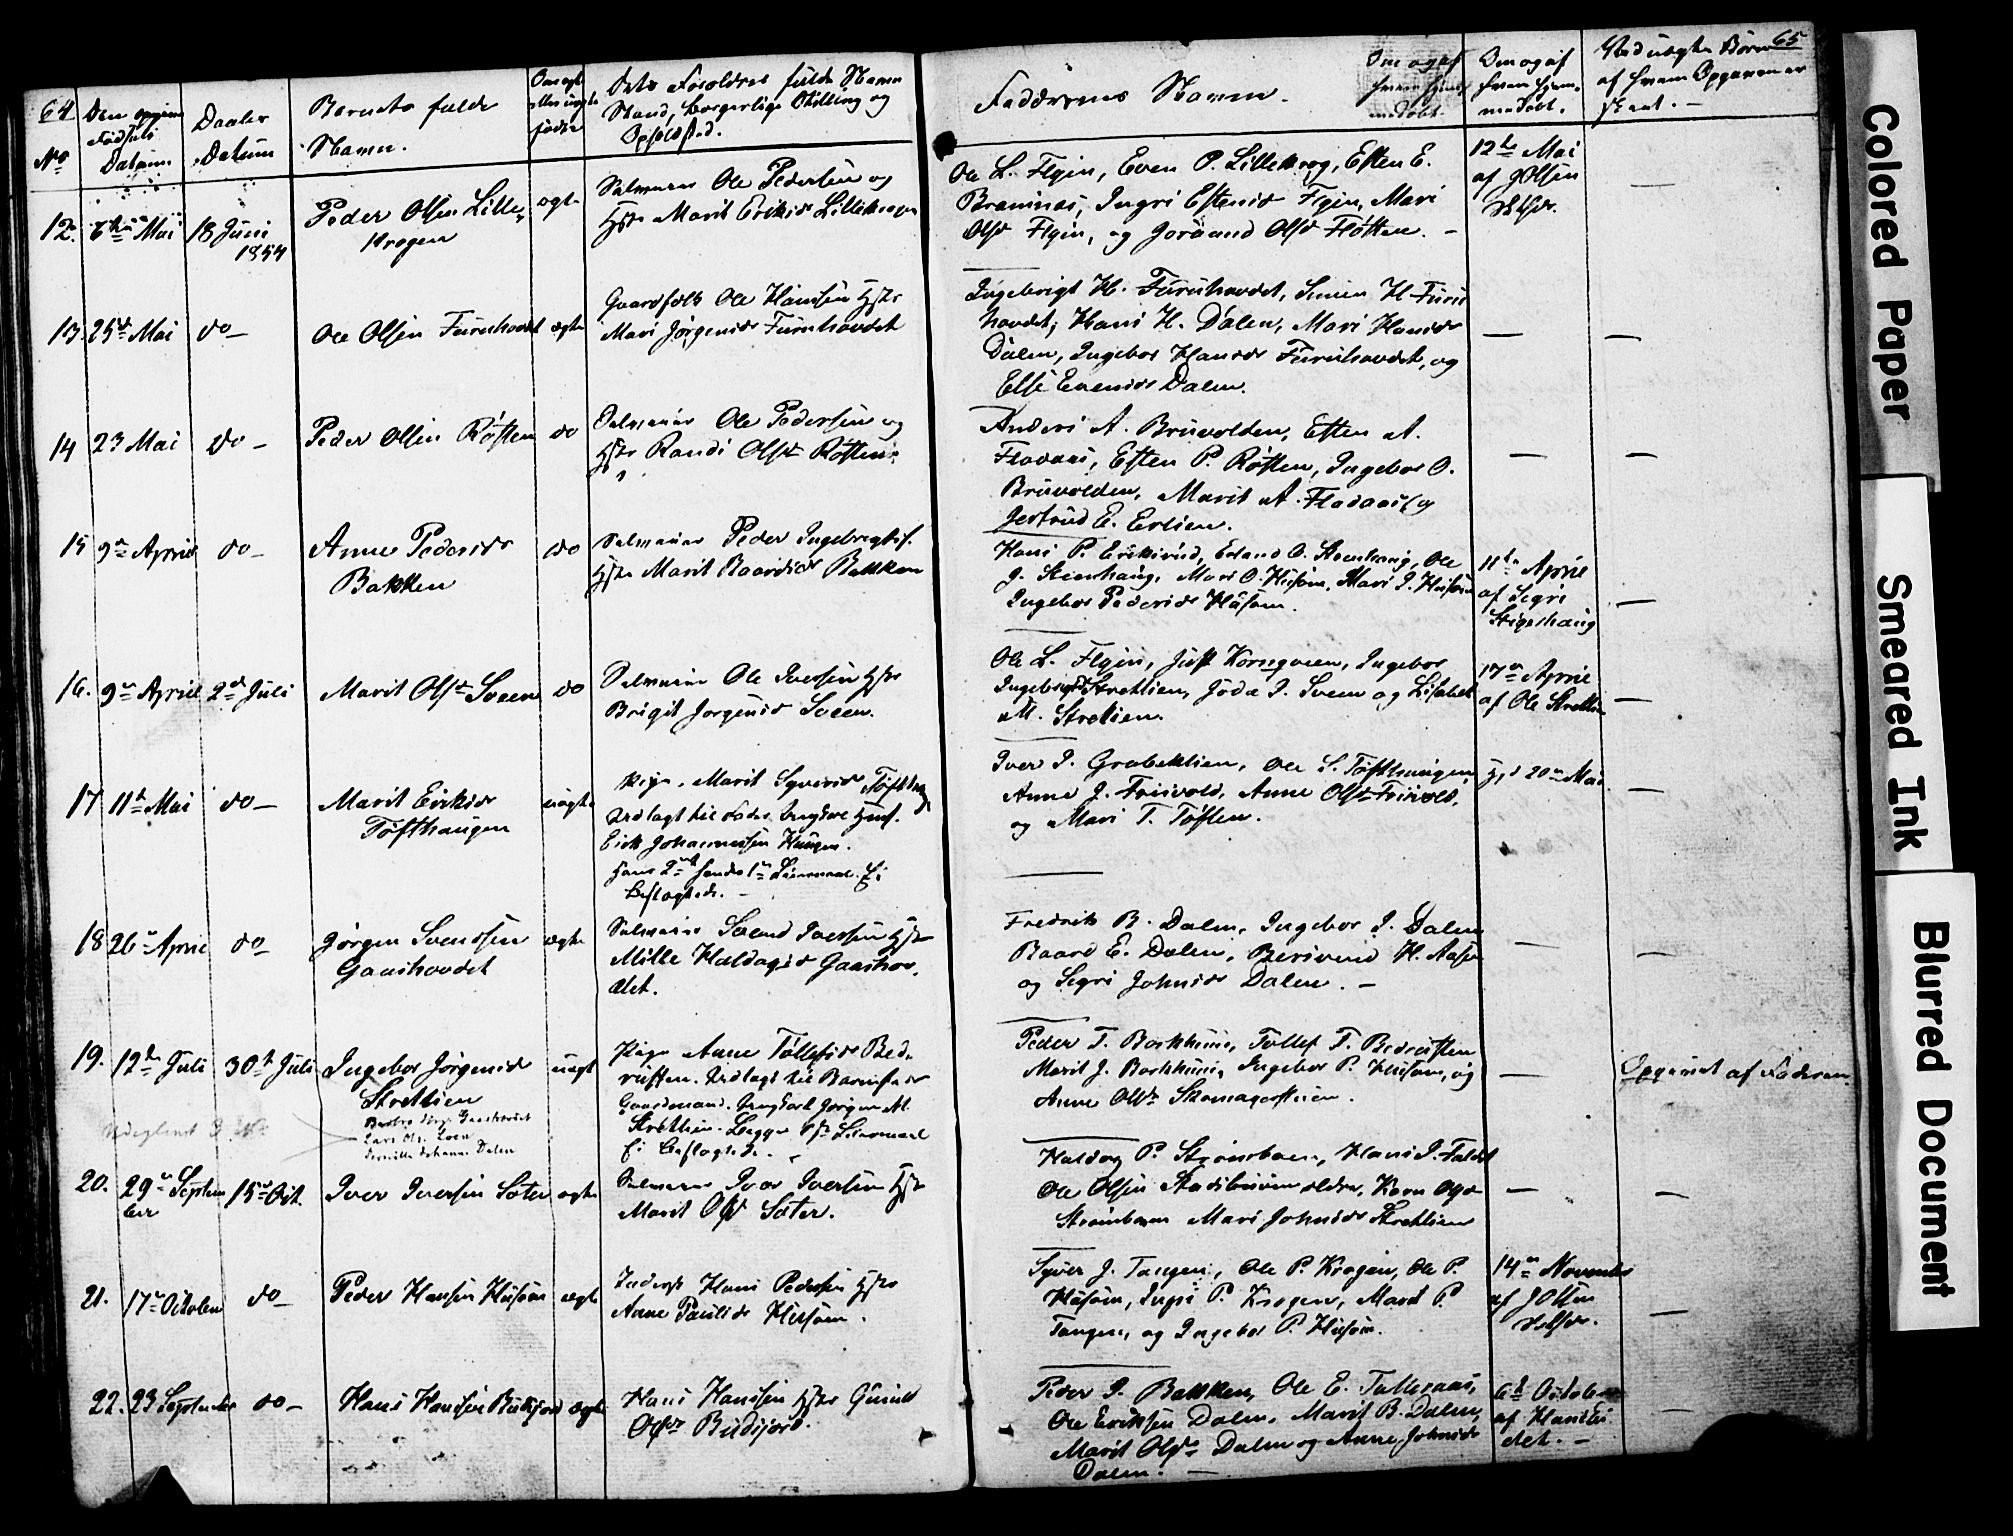 64
65
No
Den
Fødsels
Datum
Daabs
Datum
Barnets fulde
Navn.
Om ægte
eller uægte
fødte
Dets Forældres fulde Navne
Stand, borgerlige Stilling og
Opholdsted.
Faddernes Navne.
Om og af
hvem hjem-
medøbt.
Ved uægte Børn
af hvem Opgaven er
skeet. -
12. Mai 18 Juni
1854
Peder Olsen Lille-
krogen
ægte
Selveier Ole Pedersen og
Hstr Marit Eriksdr Lillekrogen
Ole L. Flyen, Even P. Lillekrog, Esten E.
Bramnæs, Ingri Estensdr Flyen, Mari
Olsd Flyen, og Jorand Olsd Fløtten. -
12te Mai
af J Olsen
13. 25de Mai do-
Ole Olsen Furuhovdet ægte
Gaardfolk Ole Hansen Hstr
Mari Jørgensdr Furuhovdet
Ingebrigt H. Furuhovdet, Simen H Furu
hovdet, Hans H. Dalen, Mari Hansdr
Dalen, Ingebor Hansdr Furuhovdet, og
Else Evensdr Dalen.
14 23 Mai do -
Peder Olsen Røsten do
Selveier Ole Pedersen og
Hstr Randi Olsdr Røsten
Anders A. Bruvolden, Esten A.
Fladaas, Esten P. Røsten, Ingebor O.
Bruvolden, Marit A. Fladaas, og
Jertrud E. Erlien.
15 9de April do-
Anne Pedersdr
Bakken
do
Selveier Peder Ingebrigts.
Hstr Marit Baardsdr Bakken
Hans P. Eriksrud, Erland O. Steenhaug, Ole
J. Steenhaug, Mari O. Husom, Mari I. Husom
Ingebor Pedersdr Husom.
11te April
af Segri
Stigershaug
16. 9de April 2den Juli
Marit Olsdr Sveen do
Selveier Ole Iversen Hstr
Brigit Jørgensdr Sveen.
Ole L. Flyen, Just Kornqveen, Ingebor
Ingebrigtsdr Stretlien, Jøda I. Sveen og Lisabet
M. Stretlien.
17de April
af Ole Stretlien
17 11te Mai do-
Marit Eriksdr
Tøfthaugen
uægte
Pige. Marit Syversdr Tøfthaug
Udlagt til Fader Ungkarl
Erik Johannessen Haugen.
Hans 2det hendes 1ste Leiermaal. Ei
Beslægtede. -
Iver I. Grabeklien, Ole S. Tøfthaugen,
Anne J. Frisvold, Anne Olsdr Frisvold,
og Mari T. Tøften.
20de Mai
18 26de April do-
Jørgen Svendsen
Gaashovdet
ægte
Selveier Svend Iversen Hstr
Mille Haldagsd Gaashov.
det.
Fredrik B. Dalen, Ingebor I. Dalen
Baard E. Dalen, Berivend H. Aasen
og Segri Johnsdr Dalen. -
19. 12te Juli 30te Juli
Ingebor Jørgensdr
Stretlien
uægt
Pige Anne Tollefsdr Bed-
rusten. Udlagt til Barnefader
Gaardmand. Ungkarl Jørgen M.
Stretlien. Begges 1ste Leiermaal
Ei Beslægtede. -
Peder T. Borkhuus, Tollef T. Bedrusten
Marit J. Borkhuus, Ingebor P. Husom, og
Anne Olsdr Skomagerstuen.
Opgivet af Faderen.
20. 29de Septem
ber
15de Oct.
Iver Iversen Sæter ægte
Selveier Iver Iversen Hstr
Marit Olsd Sæter.
Haldog P. Strømboen, Hans I. Faldet
Ole Olsen Stadsbuøien ældre, Karn Olsdr
Strømboen Mari Johnsdr Stretlien
21. 17de October do-
Peder Hansen Husom ægte
Inderst Hans Pedersen Hstr
Anne Paulsdr Husom.
Syver J. Tangen, Ole P. Krogen, Ole P.
Husom, Ingri P. Krogen, Marit P.
Tangen, og Ingebor P. Husom.
14de November
af J Olsen
22. 23 September do-
Hans Hansen Budsjord ægte
Hans Hansen Hstr Gunild
Olsdr Budsjord.
Peder I. Bakken, Ole E. Talleraas,
Ole Eriksen Dalen, Marit B. Dalen,
Marit Olsdr Dalen og Anne Johnsdr
Dalen. -
6te October
Colored Paper
Smeared Ink
Blurred Document